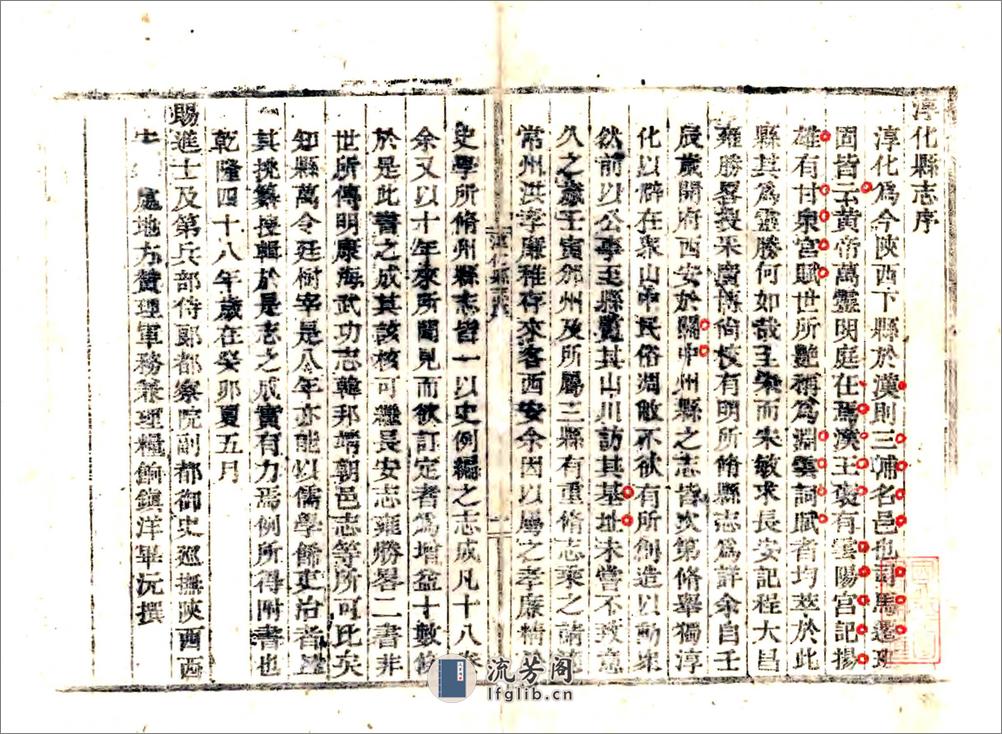 淳化縣志序
淳化爲今陝西下縣於漢則三輔名邑也司馬遷班
固皆云黄帝萬靈明庭在焉漢王襃有雲陽宫記揚
雄有甘泉宫賦世所艷稱爲淵雲詞賦者均萃於此
縣其爲靈勝何如哉王朱而宋敏求長安記程大昌
雍勝畧援采廣博倘校有明所脩縣志爲詳余自壬
辰歲開府西安於關中州縣之志皆次第脩舉獨淳
化以僻在衆山中民俗凋敝不欲有所創造以動衆
然前以公事至縣覽其山川訪其基址未嘗不致意
久之歲壬寅邠州及所屬三縣有重脩志乘之請適
常州洪孝廉稚存來客西安余因以屬之孝廉精於
淳化縣志
史學所脩州縣志皆一以史例編之志成凡十八卷
余又以十年來所聞見而欲訂定者爲增益十數條
於是此書之成其該核可繼長安志雍勝畧二書非
世所傳明康海武功志韓邦靖朝邑志等所可比矣
知縣萬令廷樹宰是八年亦能以儒學餙吏治者
其挑纂授輯於是志之成實有力焉例所得附書也
乾隆四十八年歲在癸卯夏五月
賜進士及第兵部侍郎都察院副都御史巡撫陝西西
安 處地方贊理軍務兼理糧餉鎮洋畢沅撰
流芳阁
lfglib.cn